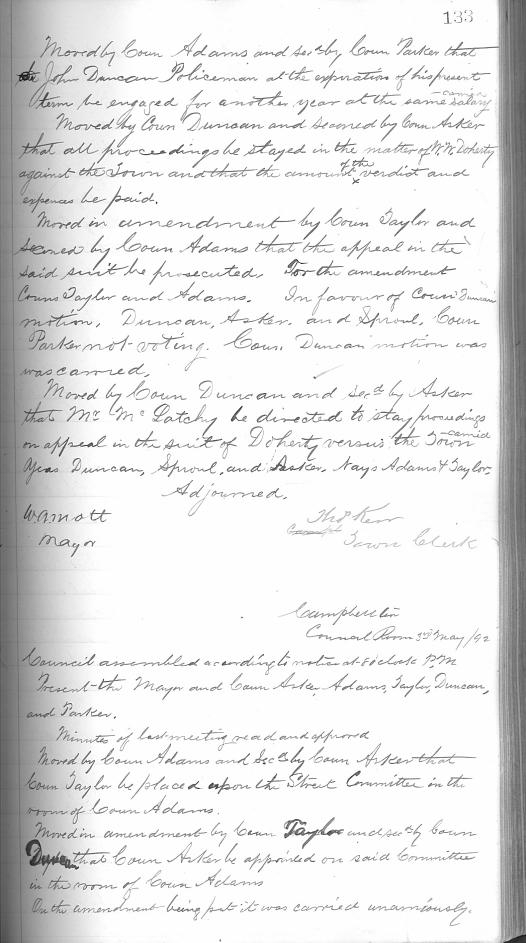 133
Moved by Coun Adams and secd by Coun Parker that
John Duncan Policeman at the expiration of his present
term be engaged for another year at the same salary carried
Moved by Coun Duncan and seconed by Coun Asker
that all proceedings be stayed in the matter of W. W. Doherty
against the Town and that the amount of the verdict and
expenses be paid.
Moved in amendment by Coun Taylor and
seconed by Coun Adams that the appeal in the
said suit be prosecuted. For the amendment
Couns Taylor and Adams. In favour of Coun Duncan
motion, Duncan, Asker, and Sproul, Coun
Parker not voting. Coun. Duncan motion was
was carried.
Moved by Coun Duncan and secd by Asker
that Mr. Mc Latchy be directed to stay proceedings
on appeal in the suit of Doherty versus the Town carried
Yeas Duncan, Sproul, and Asker. Nays Adams & Taylor
Adjourned.
W A Mott
Mayor
Thos Kerr
Town Clerk
Campbellton
Council Room 3rd May /92
Council assembled according to notice at 8 oclock P.M
Present the Mayor and Coun Asker, Adams, Taylor, Duncan,
and Parker.
Minutes of last meeting read and approved
Moved by Coun Adams and Secd by Coun Asker that
Coun Taylor be placed upon the Street Committee in the
room of Coun Adams.
Moved in amendment by Coun Taylor and secd by Coun
Duncan that Coun Asker be appointed on said Committee
in the room of Coun Adams
On the amendment being put it was carried unamiously.